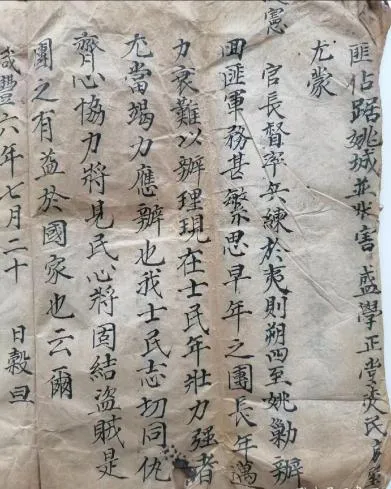 匪佔踞姚城並戕害 盛學正堂
尤蒙
大憲 官長督率兵練於夷則朔四至姚勦辦
回匪軍務甚繁思早年之團長年邁
力衰難以辦理現在士民年壯力强者
尤當竭力應辦也我士民志切同仇
齊心協力將見民心將固結盜賊是
團之有益於國家也云爾
咸豐六年七月二十 日穀旦